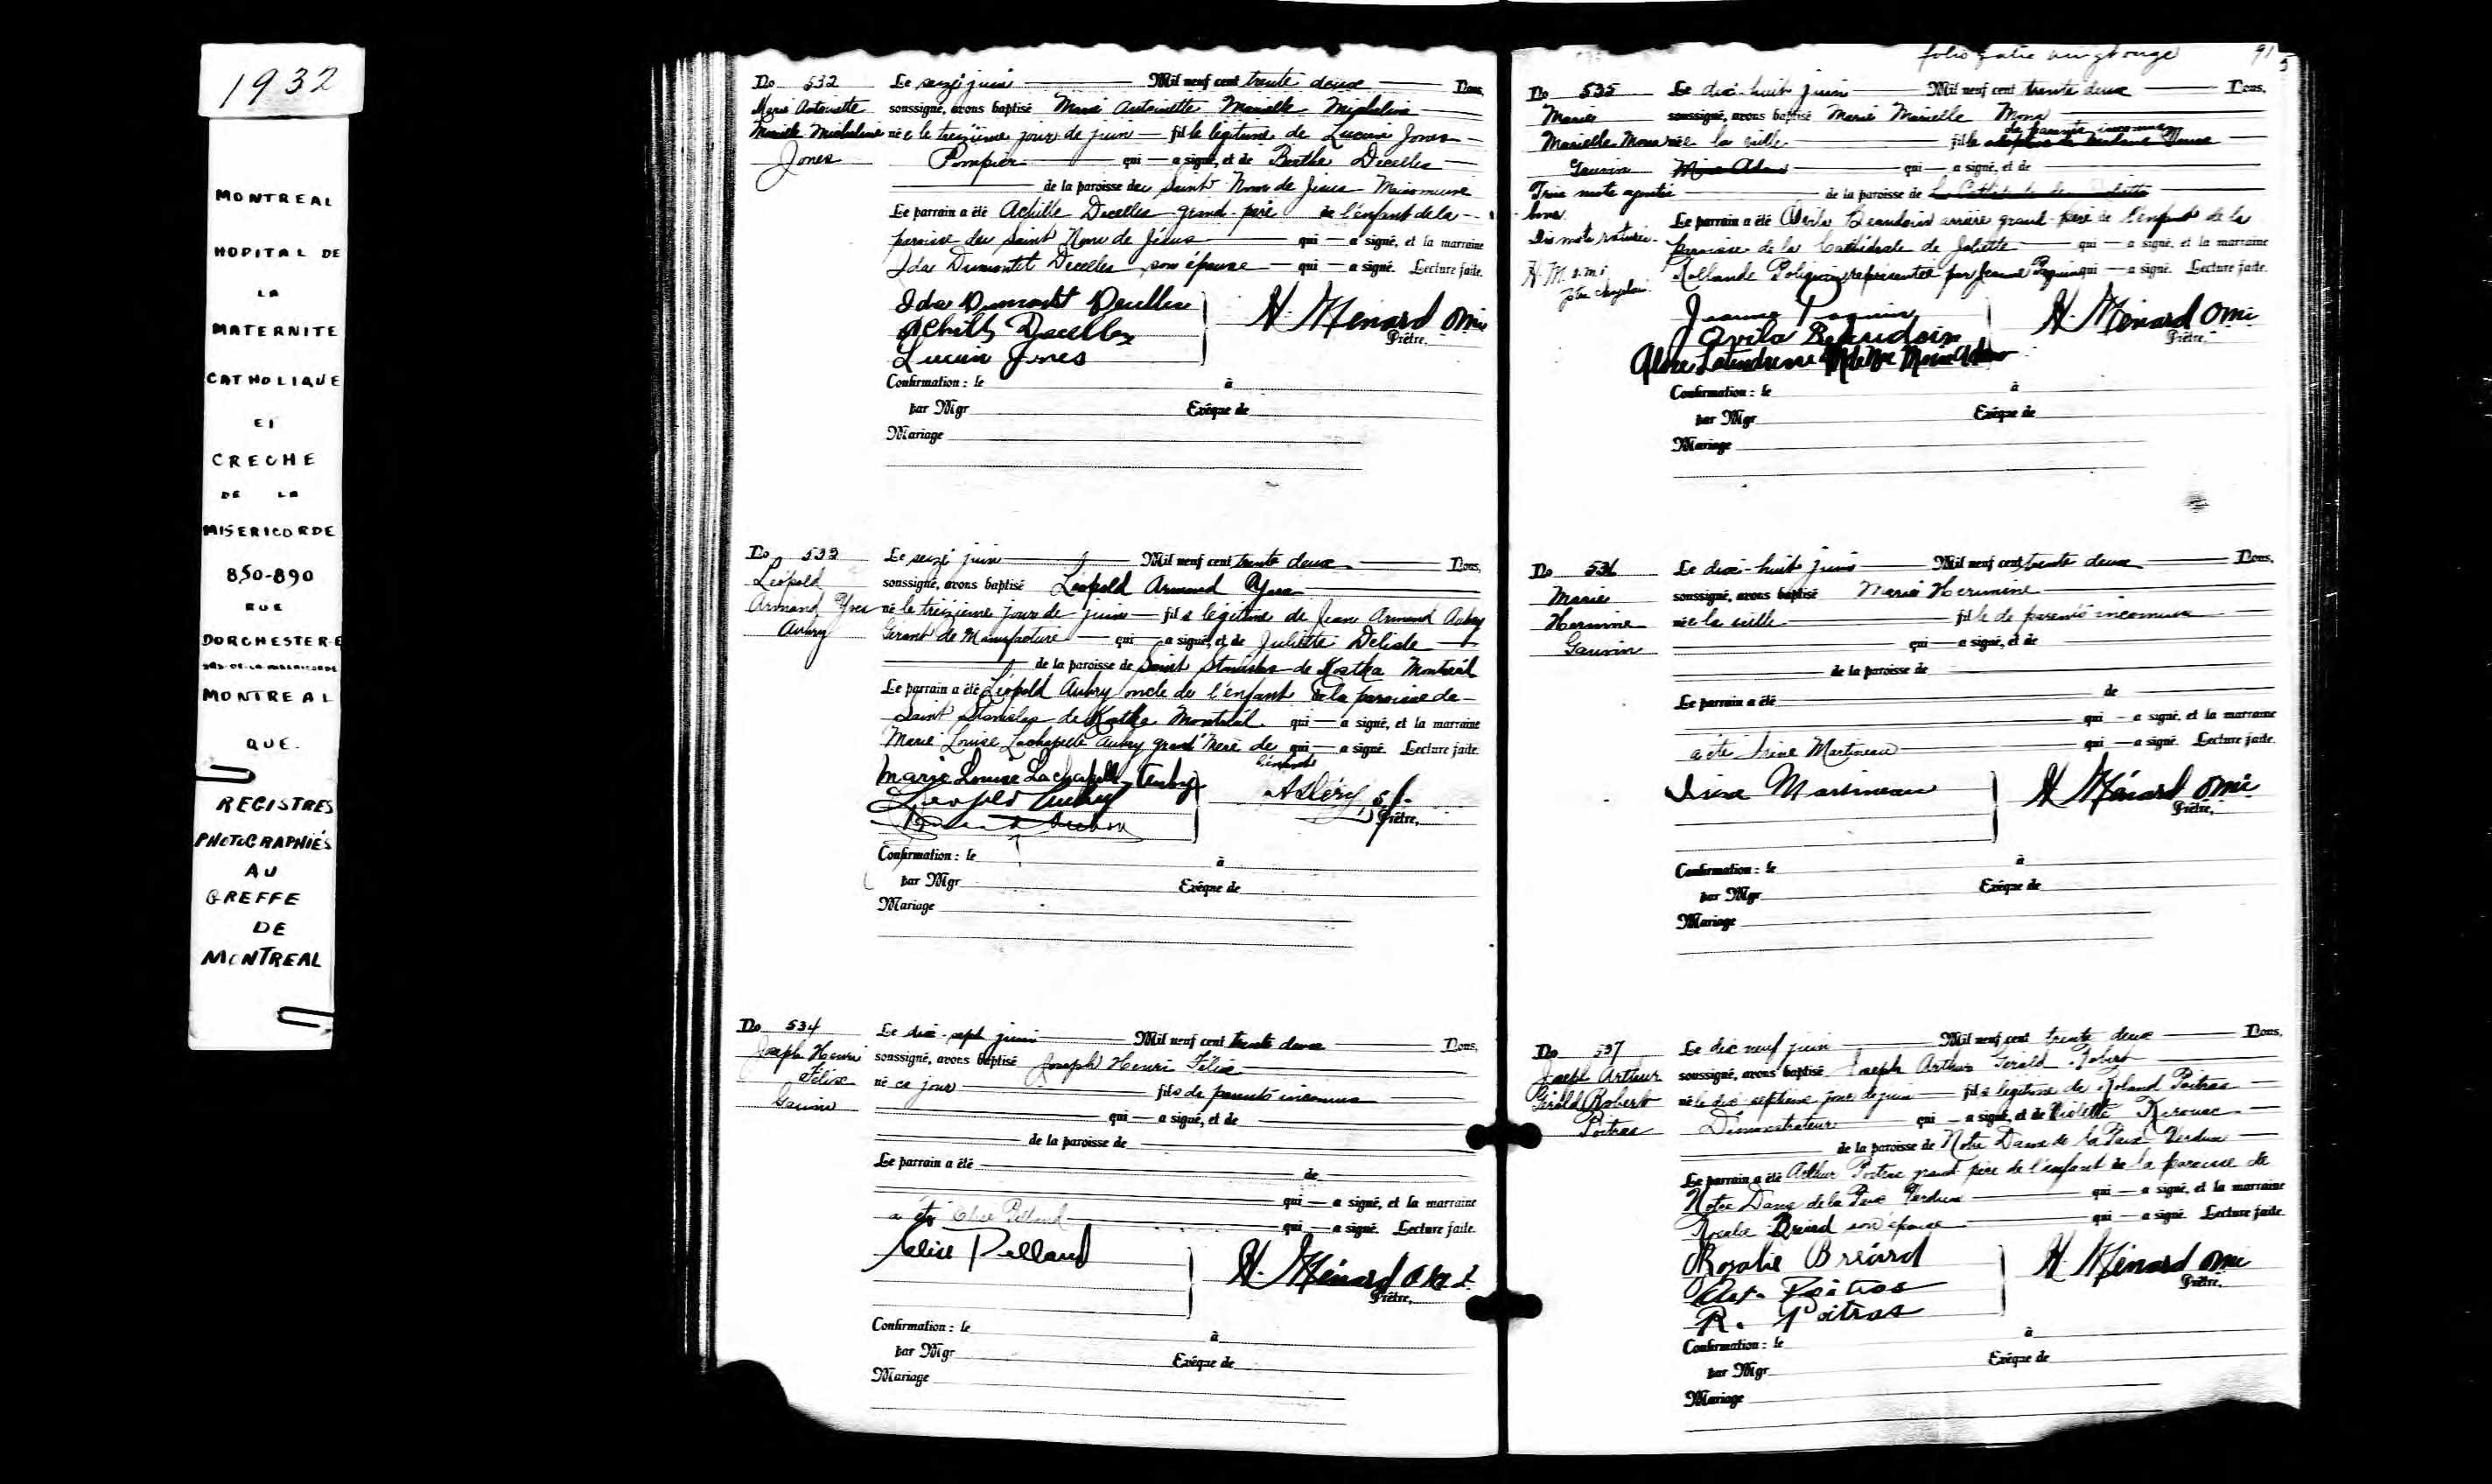 1932
MONTREAL
HOPITAL DE
LA
MATERNITE
CATHOLIQUE
ET
CRECHE
DE LA
MISERICORDE
850-890
RUE
DORCHESTER-E
MONTREAL
QUE.
REGISTRES
PHOTOGRAPHIÉS
AU
GREFFE
DE
MONTREAL
No 532 Le seize juin Mil neuf cent trente deux Nous,
Marie Antoinette soussigné, avons baptisé Marie Antoinette Marielle Micheline
Marielle Micheline née le treizième jour de juin fille légitime de Lucien Jones
Jones Pompier qui — a signé, et de Berthe Decelles
de la paroisse du Saint Nom de Jésus Maisonneuve
Le parrain a été Achille Decelles grand-père de l'enfant de la
paroisse du Saint Nom de Jésus qui — a signé, et la marraine
Ida Dumontet Decelles son épouse qui — a signé. Lecture faite.
Ida Dumontet Decelles
Achille Decelles
Lucien Jones
H. Ménard omi
Prêtre.
Confirmation : le à
par Mgr Evêque de
Mariage
No 533 Le seize juin Mil neuf cent trente deux Nous,
Léopold soussigné, avons baptisé Léopold Armand Yves
Armand Yves né le treizième jour de juin fils légitime de Jean Armand Aubry
Aubry Gérant de Manufacture qui — a signé, et de Juliette Delisle
de la paroisse de Saint Stanislas de Kostka Montréal
Le parrain a été Léopold Aubry oncle de l'enfant de la paroisse de
Saint Stanislas de Kostka Montréal qui — a signé, et la marraine
Marie Louise Lachapelle Aubry grand'mère de qui — a signé. Lecture faite.
l'enfant
Marie Louise Lachapelle Aubry
Léopold Aubry
s.j.
Prêtre.
Confirmation : le à
par Mgr Evêque de
Mariage
No 534 Le dix-sept juin Mil neuf cent trente deux Nous,
Joseph Henri soussigné, avons baptisé Joseph Henri Félix
Félix né ce jour fils de parents inconnus
Gauvin qui — a signé, et de
de la paroisse de
Le parrain a été de
qui — a signé, et la marraine
a été Alice Pelland qui — a signé. Lecture faite.
Alice Pelland
H. Ménard o.m.i.
Prêtre.
Confirmation : le à
par Mgr Evêque de
Mariage
folio quatre vingt onze 91
No 535 Le dix-huit juin Mil neuf cent trente deux Nous,
Marie soussigné, avons baptisé Marie Marielle Mona
de parents inconnus
Marielle Mona née la veille fille
Gauvin qui — a signé, et de
Trois mots ajoutés de la paroisse de
bons.
Le parrain a été Avila Beaudoin arrière grand-père de l'enfant de la
Dix mots raturés.
paroisse de la Cathédrale de Joliette qui — a signé, et la marraine
H. M. o.m.i.
Rollande Poliquin représentée par Jeanne Paquin qui — a signé. Lecture faite.
Jeanne Paquin
Avila Beaudoin
H. Ménard omi
Prêtre.
Confirmation : le à
par Mgr Evêque de
Mariage
No 536 Le dix-huit juin Mil neuf cent trente deux Nous,
Marie soussigné, avons baptisé Marie Hermine
Hermine née la veille fille de parents inconnus
Gauvin qui — a signé, et de
de la paroisse de
Le parrain a été de
qui — a signé, et la marraine
a été Irène Martineau qui — a signé. Lecture faite.
Irène Martineau
H Ménard omi
Prêtre.
Confirmation : le à
par Mgr Evêque de
Mariage
No 537 Le dix neuf juin Mil neuf cent trente deux Nous,
Joseph Arthur soussigné, avons baptisé Joseph Arthur Gérald Robert
Gérald Robert né le dix septième jour de juin fils légitime de Roland Poitras
Poitras Démonstrateur qui — a signé, et de Violette Kirouac
de la paroisse de Notre Dame de la Paix Verdun
Le parrain a été Arthur Poitras grand-père de l'enfant de la paroisse de
Notre Dame de la Paix Verdun qui — a signé, et la marraine
Rosalie Briard son épouse qui — a signé. Lecture faite.
Rosalie Briard
Art. Poitras
R. Poitras
H. Ménard omi
Prêtre.
Confirmation : le à
par Mgr Evêque de
Mariage